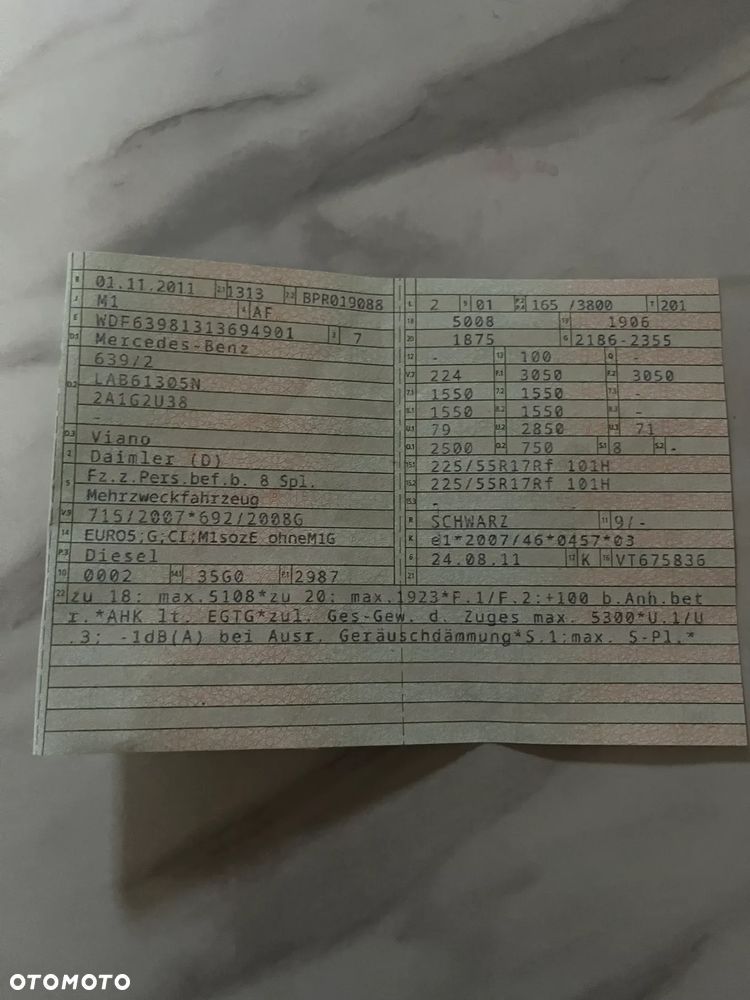 B 01.11.2011 2.1 1313 2.2 BPR019088
J M1 4 AF
E WDF63981313694901 3 7
D.1 Mercedes-Benz
639/2
D.2 LAB61305N
2A1G2U38
-
D.3 Viano
2 Daimler (D)
5 Fz.z.Pers.bef.b. 8 Spl.
Mehrzweckfahrzeug
V.9 715/2007*692/2008G
14 EURO5;G;CI;M1sozE ohneM1G
P.3 Diesel
10 0002 14.1 35G0 P.1 2987
L 2 9 01 P.2 P.4 165 /3800 T 201
18 5008 19 1906
20 1875 G 2186-2355
12 - 13 100 Q -
V.7 224 F.1 3050 F.2 3050
7.1 1550 7.2 1550 7.3 -
8.1 1550 8.2 1550 8.3 -
U.1 79 U.2 2850 U.3 71
O.1 2500 O.2 750 S.1 8 S.2 -
15.1 225/55R17Rf 101H
15.2 225/55R17Rf 101H
15.3 -
R SCHWARZ 11 9/-
K e1*2007/46*0457*03
6 24.08.11 17 K 16 VT675836
21
22 zu 18: max.5108*zu 20: max.1923*F.1/F.2:+100 b.Anh.bet
r.*AHK lt. EGTG*zul. Ges-Gew. d. Zuges max. 5300*U.1/U
.3; -1dB(A) bei Ausr. Geräuschdämmung*S.1:max. S-Pl.*
OTOMOTO